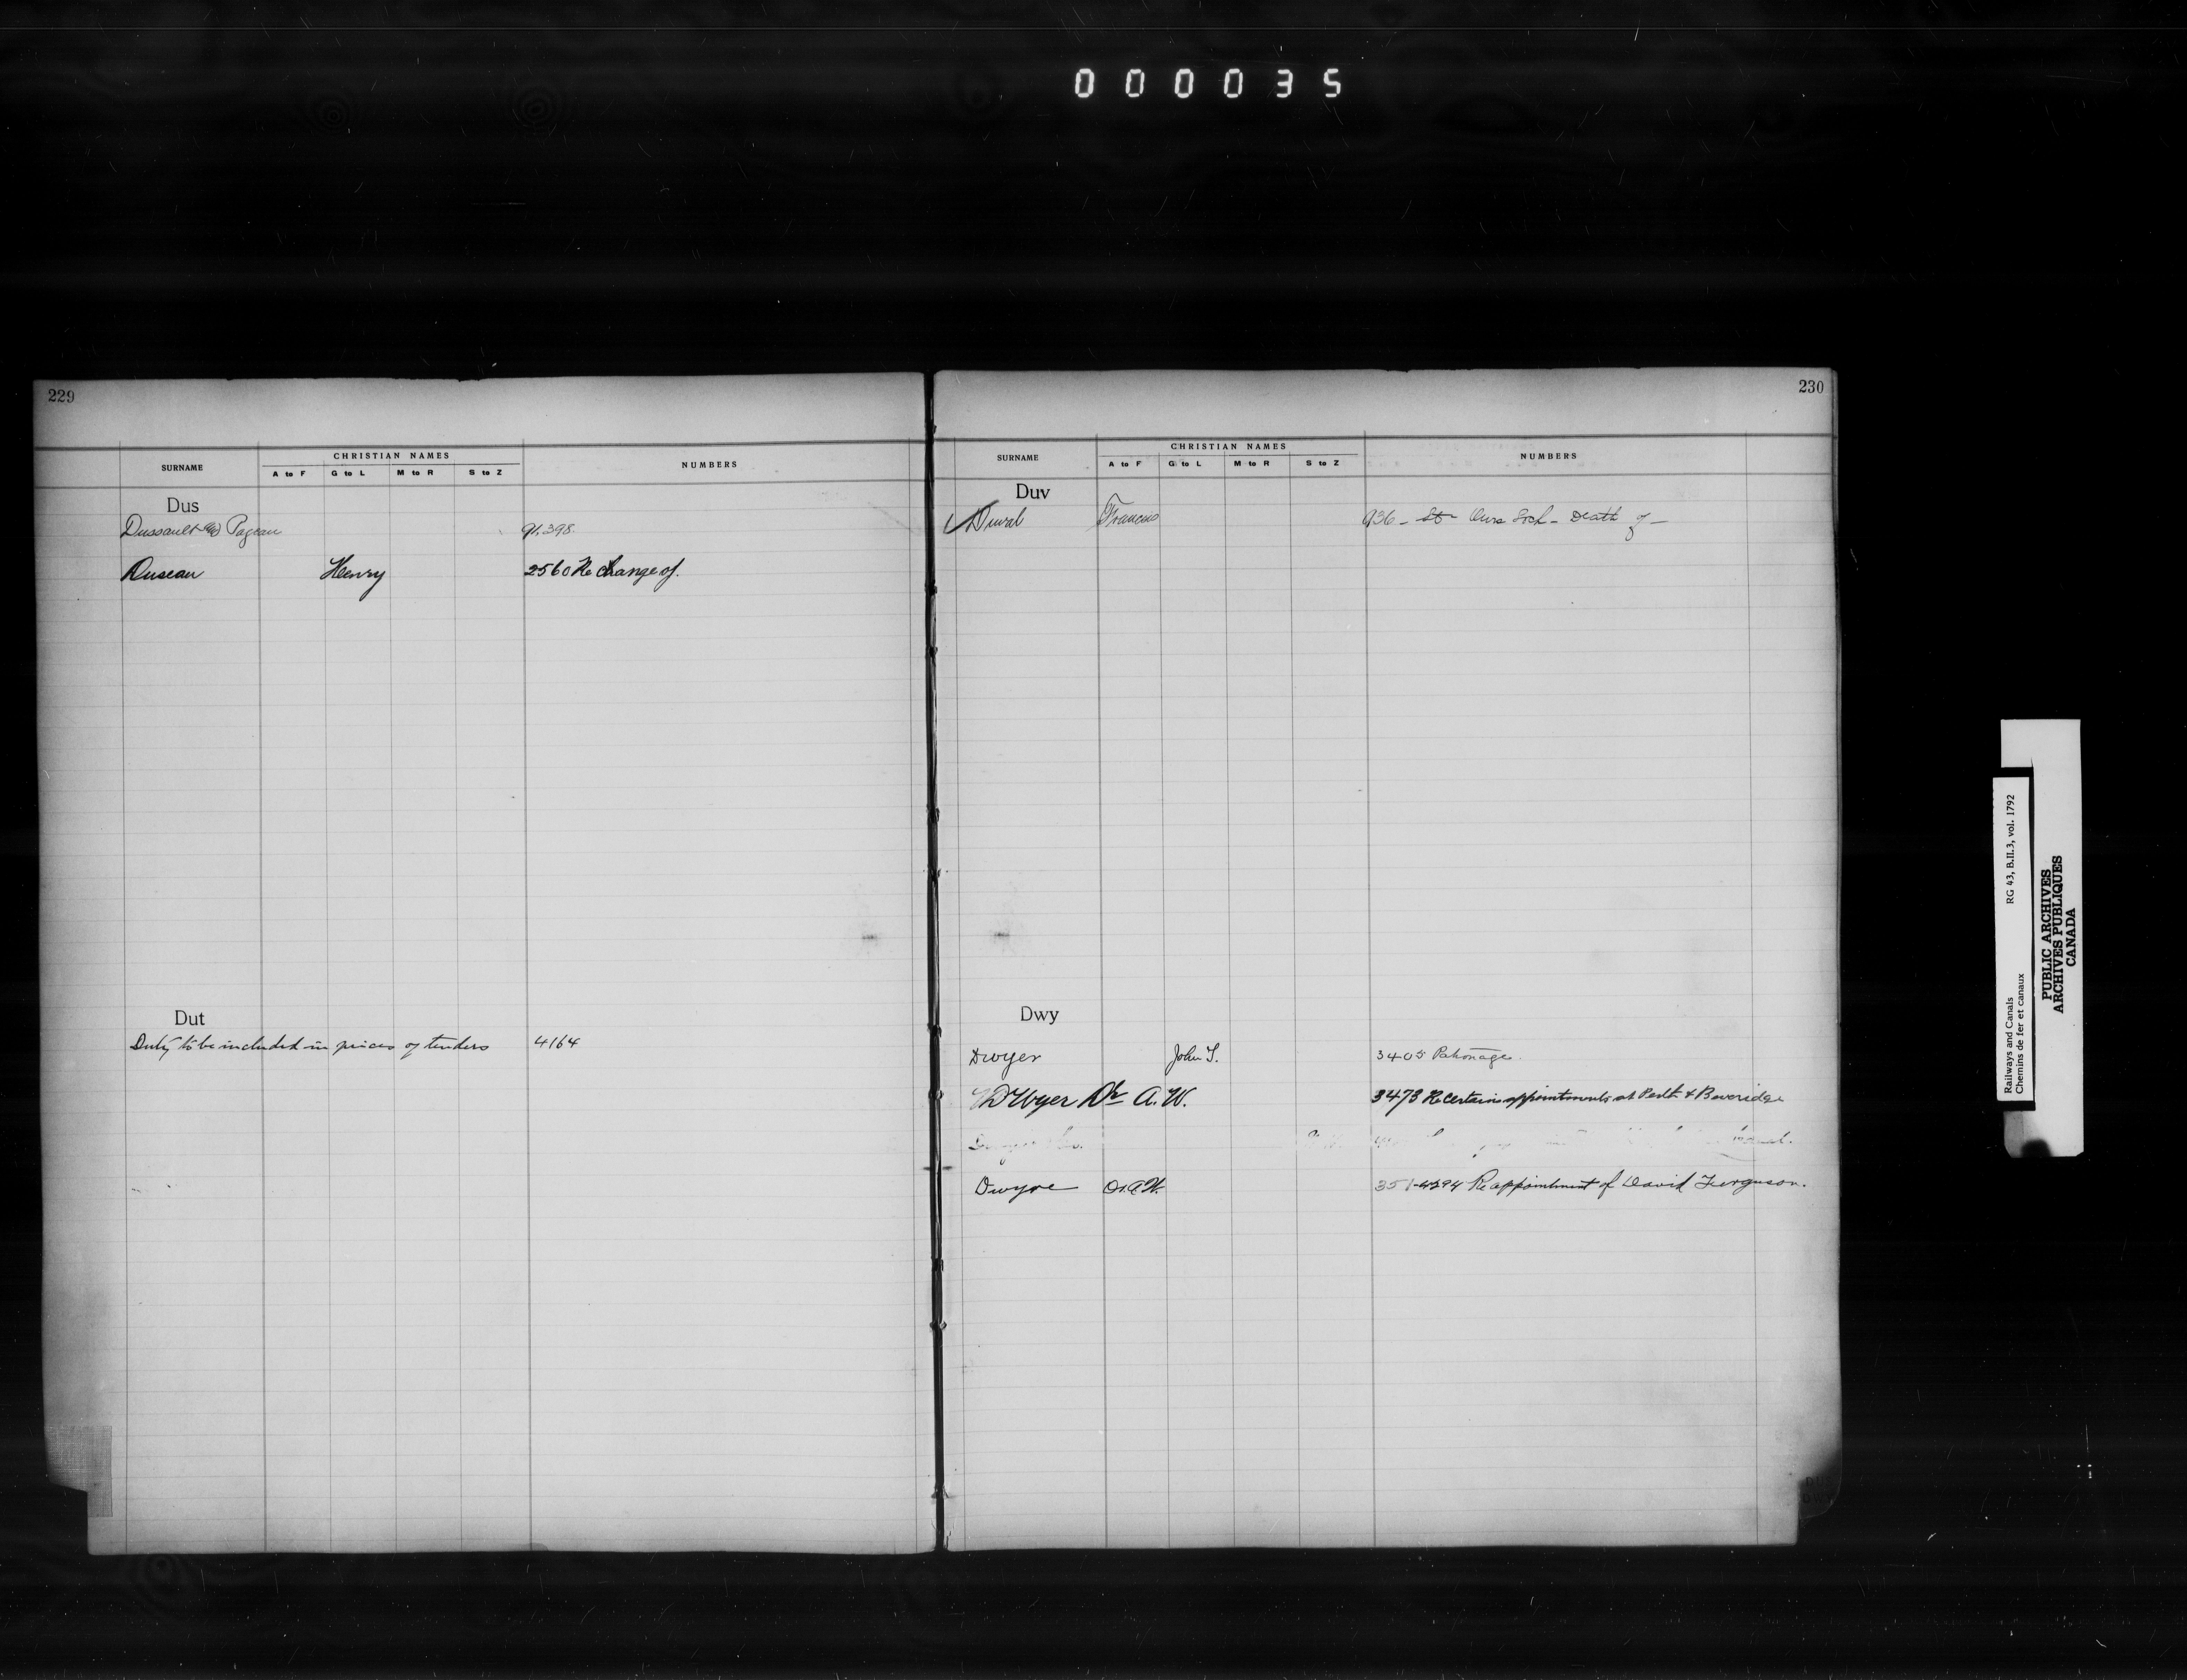 000035
229
SURNAME CHRISTIAN NAMES NUMBERS
A to F G to L M to R S to Z
Dus
Dussault & Pageau 91.398.
Duseau Henry 2560 Re change of.
Dut
Duty to be included in prices of tenders 4164
230
SURNAME CHRISTIAN NAMES NUMBERS
A to F G to L M to R S to Z
Duv
Duval Francois 936 - St Ours Lock - Death of -
Dwy
Dwyer John T. 3405 Patronage.
Dwyer Dr A. W. 3473 Re certain appointments at Perth & Beveridge
Dwyre Dr. A W. 351-4294 Re appointment of David Ferguson.
Railways and Canals RG 43, B.II.3, vol. 1792
Chemins de fer et canaux
PUBLIC ARCHIVES
ARCHIVES PUBLIQUES
CANADA